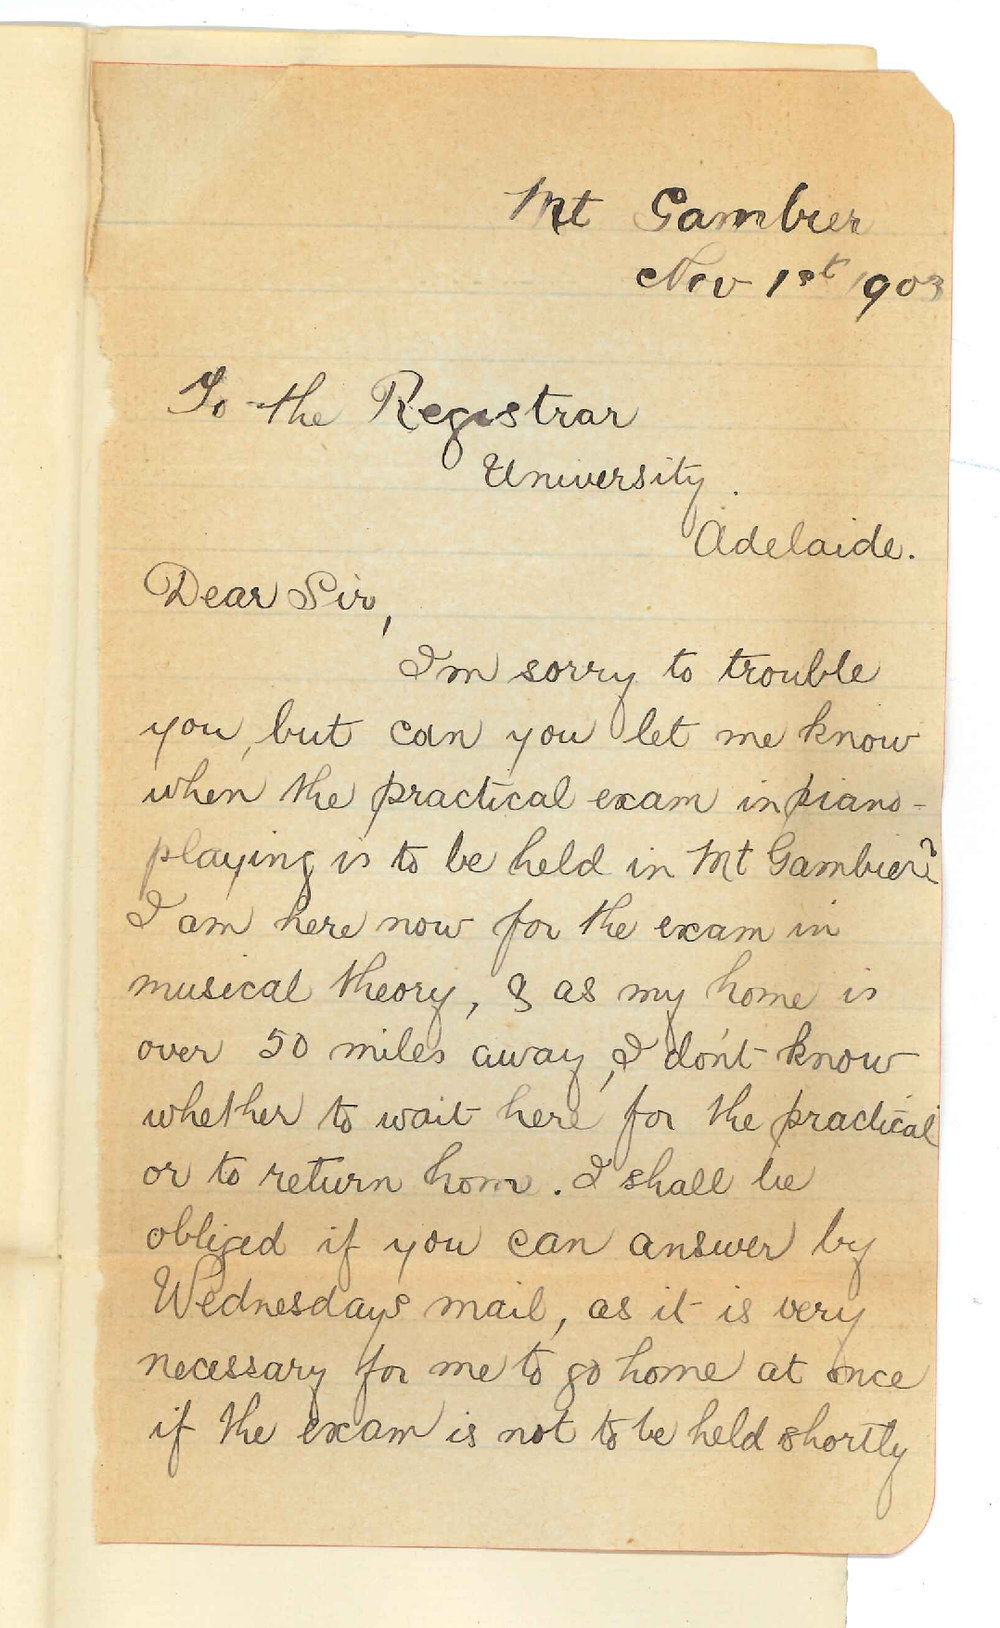 Mt Gambier
Nov 1st 1903
To the Registrar
University.
Adelaide.
Dear Sir,
I'm sorry to trouble
you, but can you let me know
when the practical exam in piano-
playing is to be held in Mt Gambier?
I am here now for the exam in
musical theory, & as my home is
over 50 miles away, I don't know
whether to wait here for the practical
or to return home. I shall be
obliged if you can answer by
Wednesdays mail, as it is very
necessary for me to go home at once
if the exam is not to be held shortly